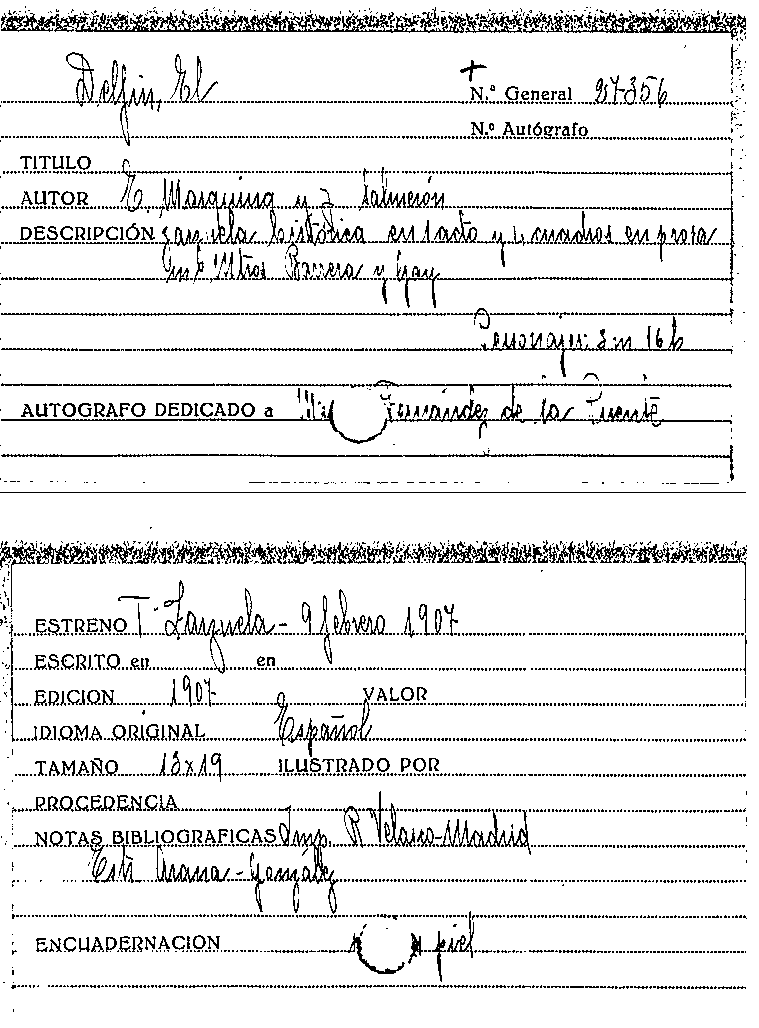 Delfin, El
N.º General 27-356
N.º Autógrafo
TITULO
AUTOR E. Marquina y J. Salmerón
DESCRIPCIÓN Zarzuela histórica en 1 acto y 4 cuadros en prosa
Mtros Barrera y Gay
Personajes: 3 m 16 h
AUTOGRAFO DEDICADO a Fernández de la Puente
ESTRENO T. Zarzuela - 9 febrero 1907
ESCRITO en en
EDICION 1907 VALOR
IDIOMA ORIGINAL Español
TAMAÑO 13x19 ILUSTRADO POR
PROCEDENCIA
NOTAS BIBLIOGRAFICAS Imp. R Velasco-Madrid
Arana - González
ENCUADERNACION piel